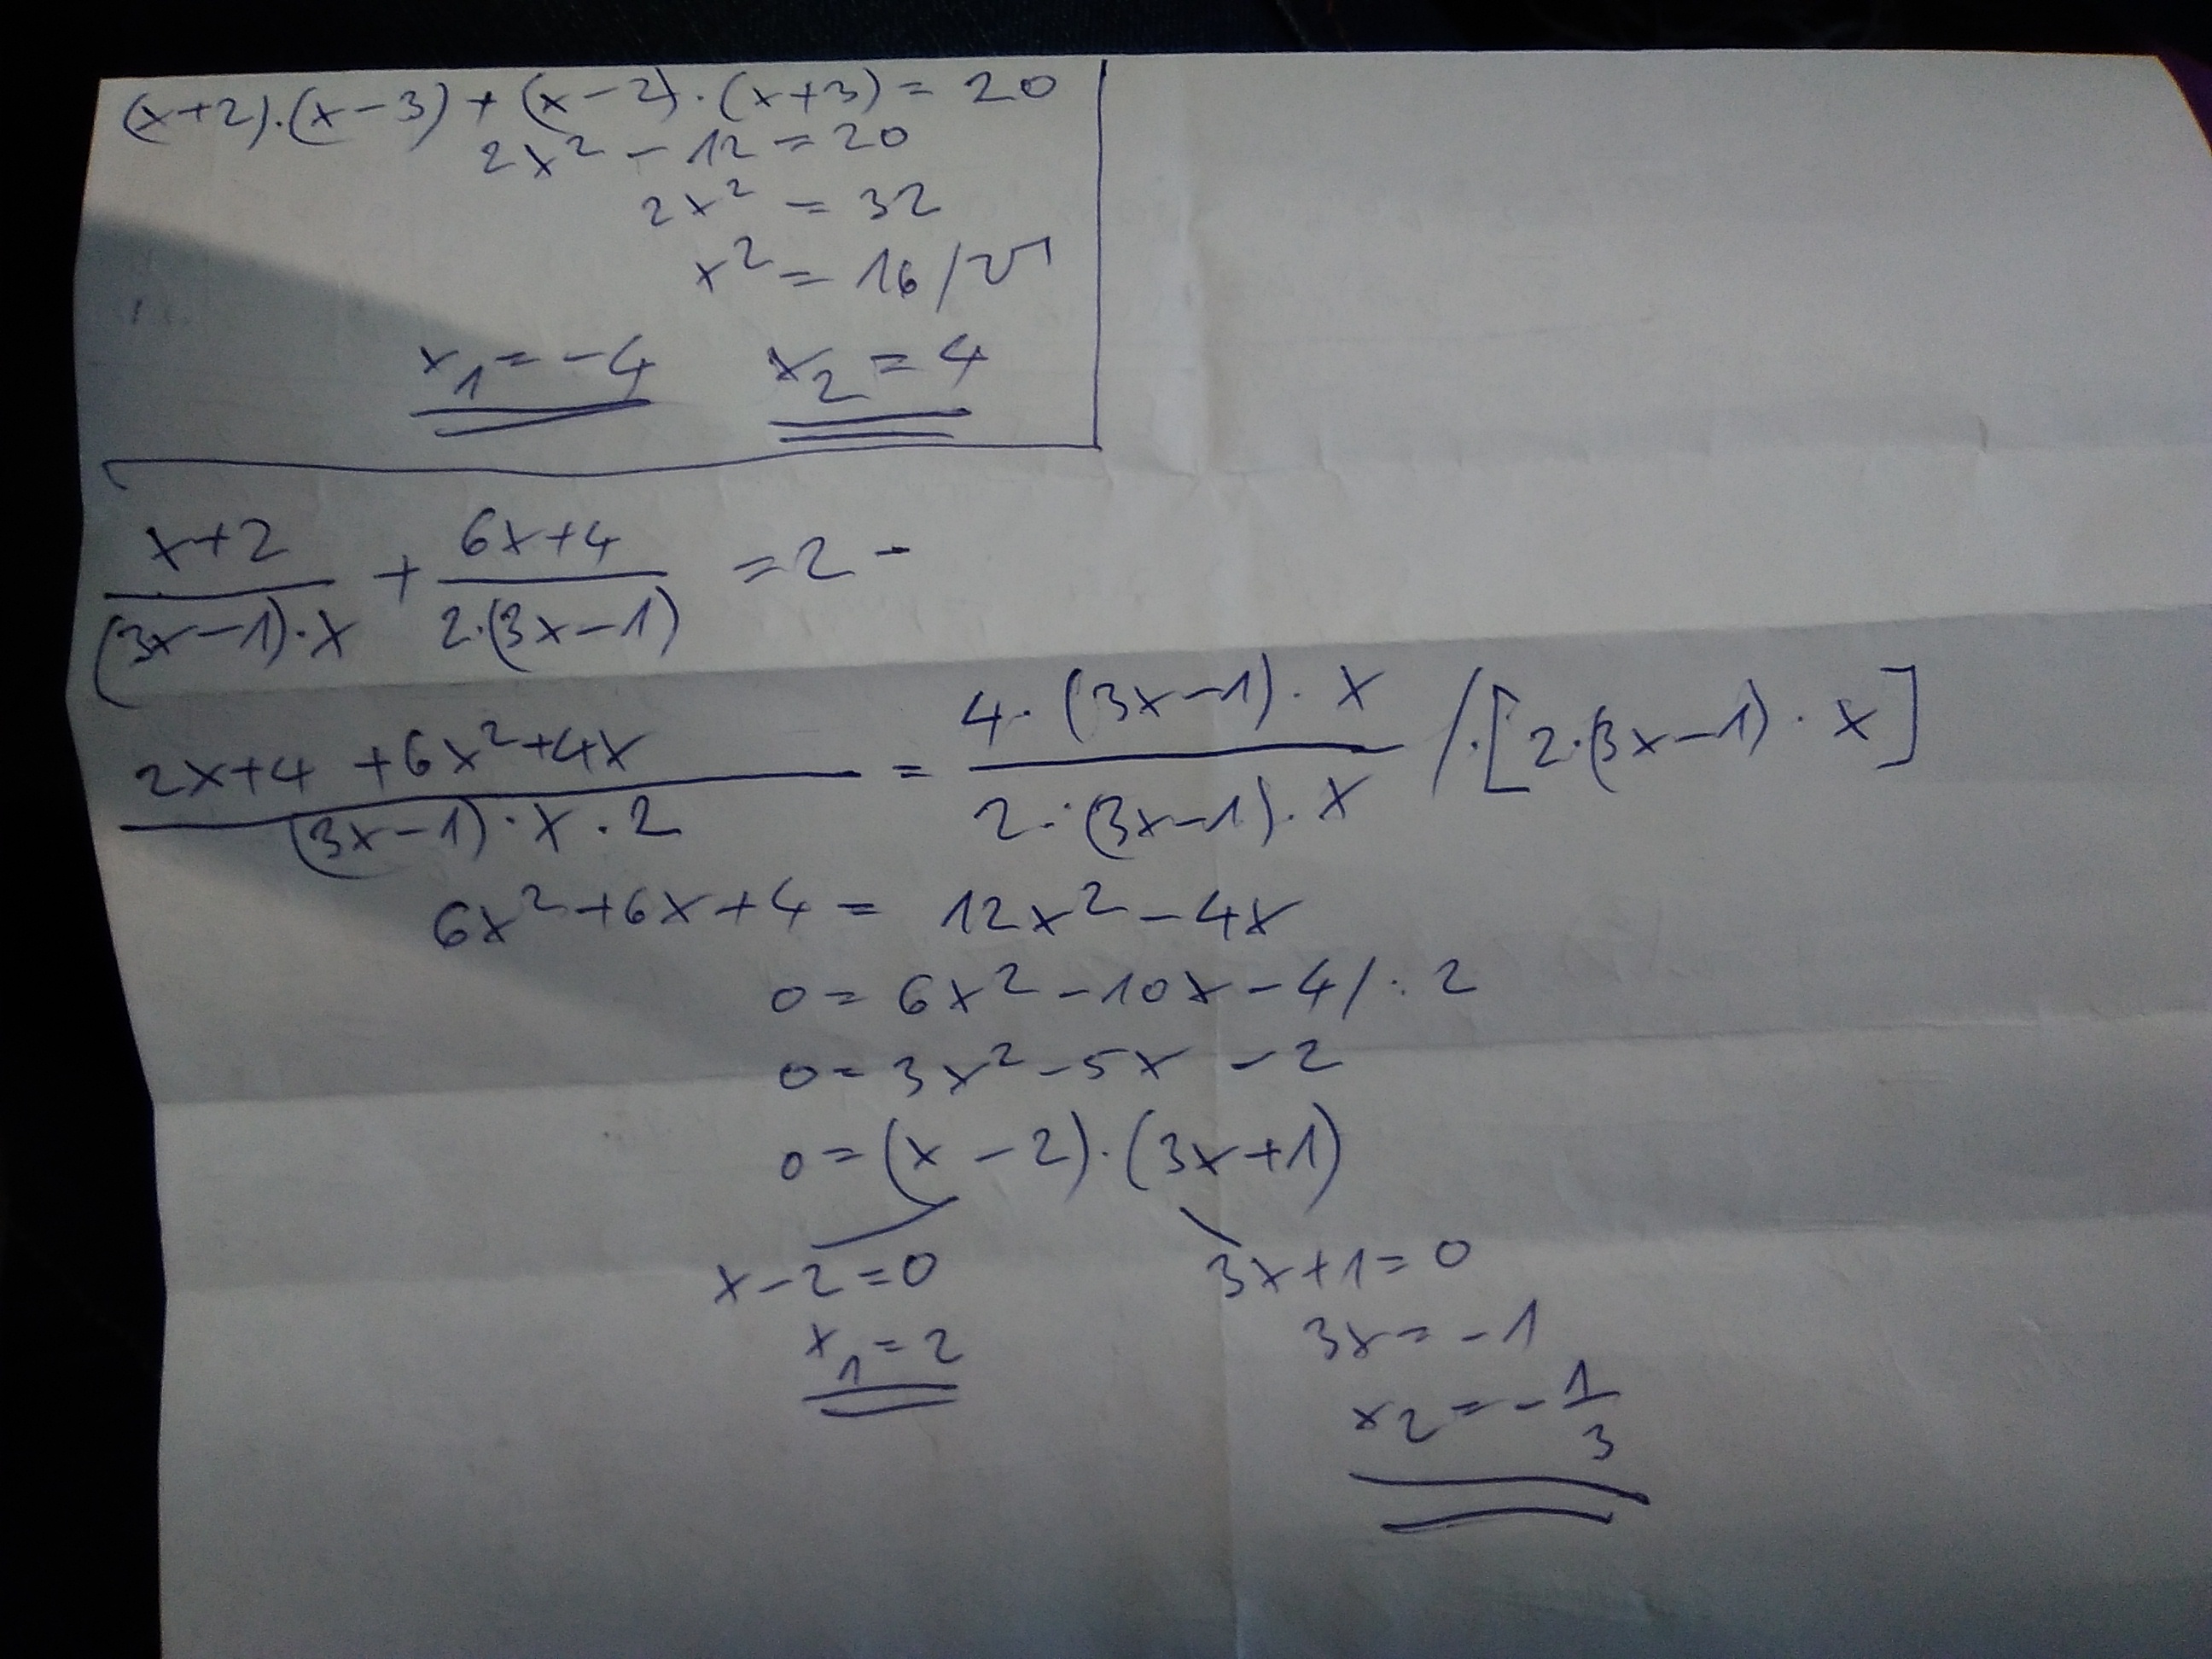 (x+2)·(x-3)+(x-2)·(x+3)=20
2x²-12=20
2x²=32
x²=16/√
x₁=-4 x₂=4
x+2 6x+4
+ =2 -
(3x-1)·x 2·(3x-1)
2x+4+6x²+4x = 4·(3x-1)·x /·[2·(3x-1)·x]
(3x-1)·x·2 2·(3x-1)·x
6x²+6x+4=12x²-4x
0=6x²-10x-4/:2
0=3x²-5x-2
0=(x-2)·(3x+1)
x-2=0 3x+1=0
x₁=2 3x=-1
x₂=-1/3